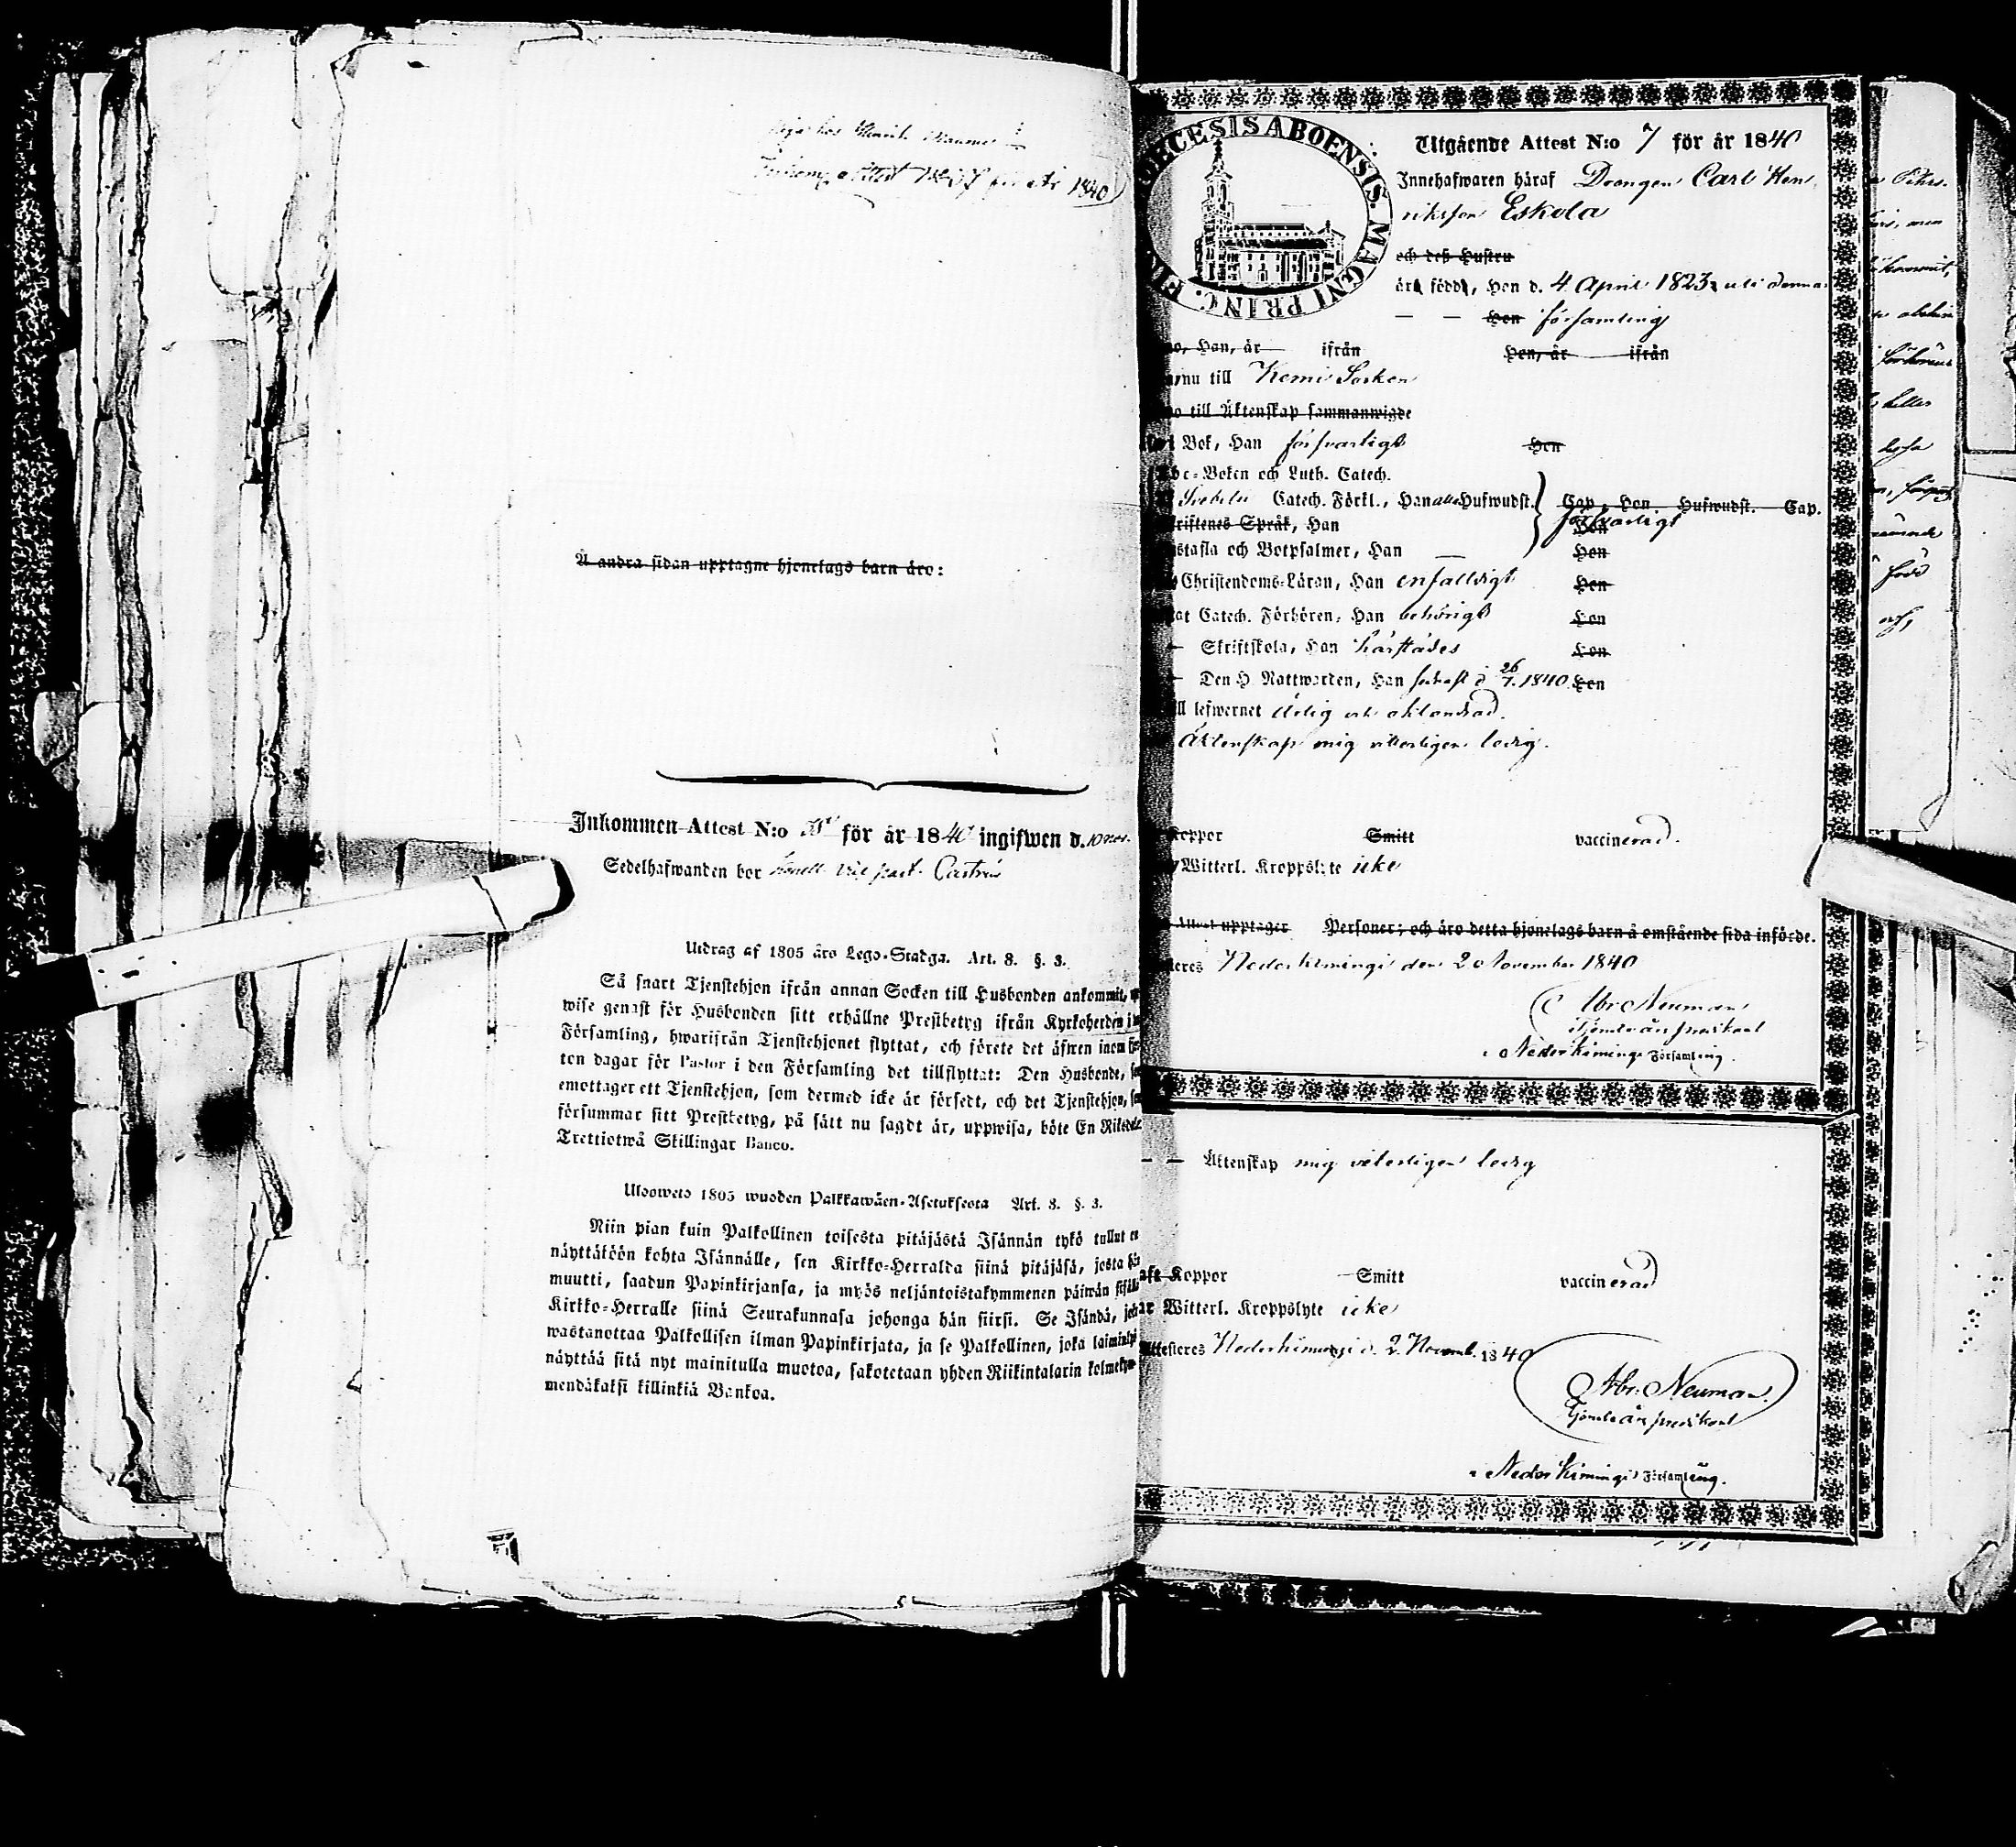 1840
Å andra sidan upptagne hjonelags barn äro:
Inkommen Attest N:o för år 1840 ingifwen d. 10
Sedelhafwanden bor Castrén
Utdrag af 1805 års Lego-Stadga. Art. 8. §. 3.
Så snart Tjenstehjon ifrån annan Socken till Husbonden ankommit,
wise genast för Husbonden sitt erhållne Prestbetyg ifrån Kyrkoherden i
Församling, hwarifrån Tjenstehjonet flyttat, och förete det äfwen inom
ton dagar för Pastor i den Församling det tillflyttat: Den Husbonde,
emottager ett Tjenstehjon, som dermed icke är försedt, och det Tjenstehjon,
försummar sitt Prestbetyg, på sätt nu sagdt är, uppwisa, böte En Riksdaler
Trettiotwå Skillingar Banco.
Uloswets 1805 wuoden Palkkawäen-Asetuksesta Art. 8. §. 3.
Niin pian kuin Palkollinen toisesta pitäjästä Isännän tykö tullut
näyttäköön kohta Isännälle, sen Kirkko-Herralda siinä pitäjäsä, josta hän
muutti, saadun Papinkirjansa, ja myös neljäntoistakymmenen päiwän sisällä
Kirkko-Herralle siinä Seurakunnasa johonga hän siirsi. Se Isändä, joka
wastanottaa Palkollisen ilman Papinkirjata, ja se Palkollinen, joka laiminlyö
näyttää sitä nyt mainitulla muotoa, sakotetaan yhden Riikintalarin kolmekym-
mendäkaksi killinkiä Bankoa.
DIOECESIS ABOENSIS. MAGNI PRINC.
Utgående Attest N:o 7 för år 1840
Innehafwaren häraf Drängen Carl Hen
riksson Eskola
och deß Hustru
är född, Han d. 4 April 1823 uti denna
Hon församling
Han, år ifrån Hon, år ifrån
nu till Kemi Socken
till Äktenskap sammanwigde
Bok, Han försvarligt Hon
Abc-Boken och Luth. Catech.
Svebelii Catech. Förkl., Han alla Hufwudst. Cap. Hon Hufwudst. Cap.
Skriftenes Språk, Han försvarligt Hon
Hustafla och Botpsalmer, Han — Hon
Christendoms-Läran, Han enfalldigt Hon
Catech. Förhören, Han behörigt Hon
— Skriftskola, Han härstädes Hon
— Den H. Nattwarden, Han sednast d. 26/7. 1840 Hon
till lefwernet ärlig och oklandrad.
Äktenskap mig vitterligen ledig.
Koppor Smitt vaccinerad.
Witterl. Kroppslyte icke
Attest upptager Personer; och äro detta hjonelags barn å omstående sida införde.
Nederkimingi den 2 November 1840
Abr. Neuman
Tjenstv. än predikant
i Nederkimingi Församling.
— — Äktenskap mig viterligen ledig
haft Koppor Smitt vaccinerad
har Witterl. Kroppslyte icke
Attesteres Nederkimingi d. 2. Novemb. 1840
Abr. Neuman.
i Nederkimingi Församling.